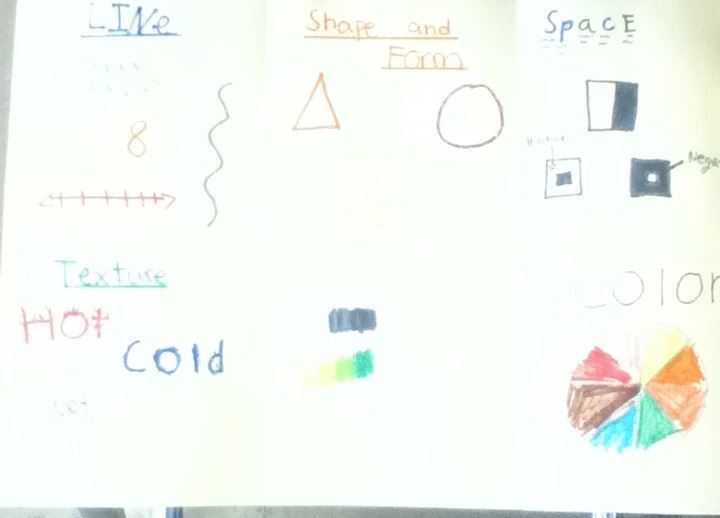 LINe
8
Shape and
Form
SpacE
Texture
Hot
Cold
Color